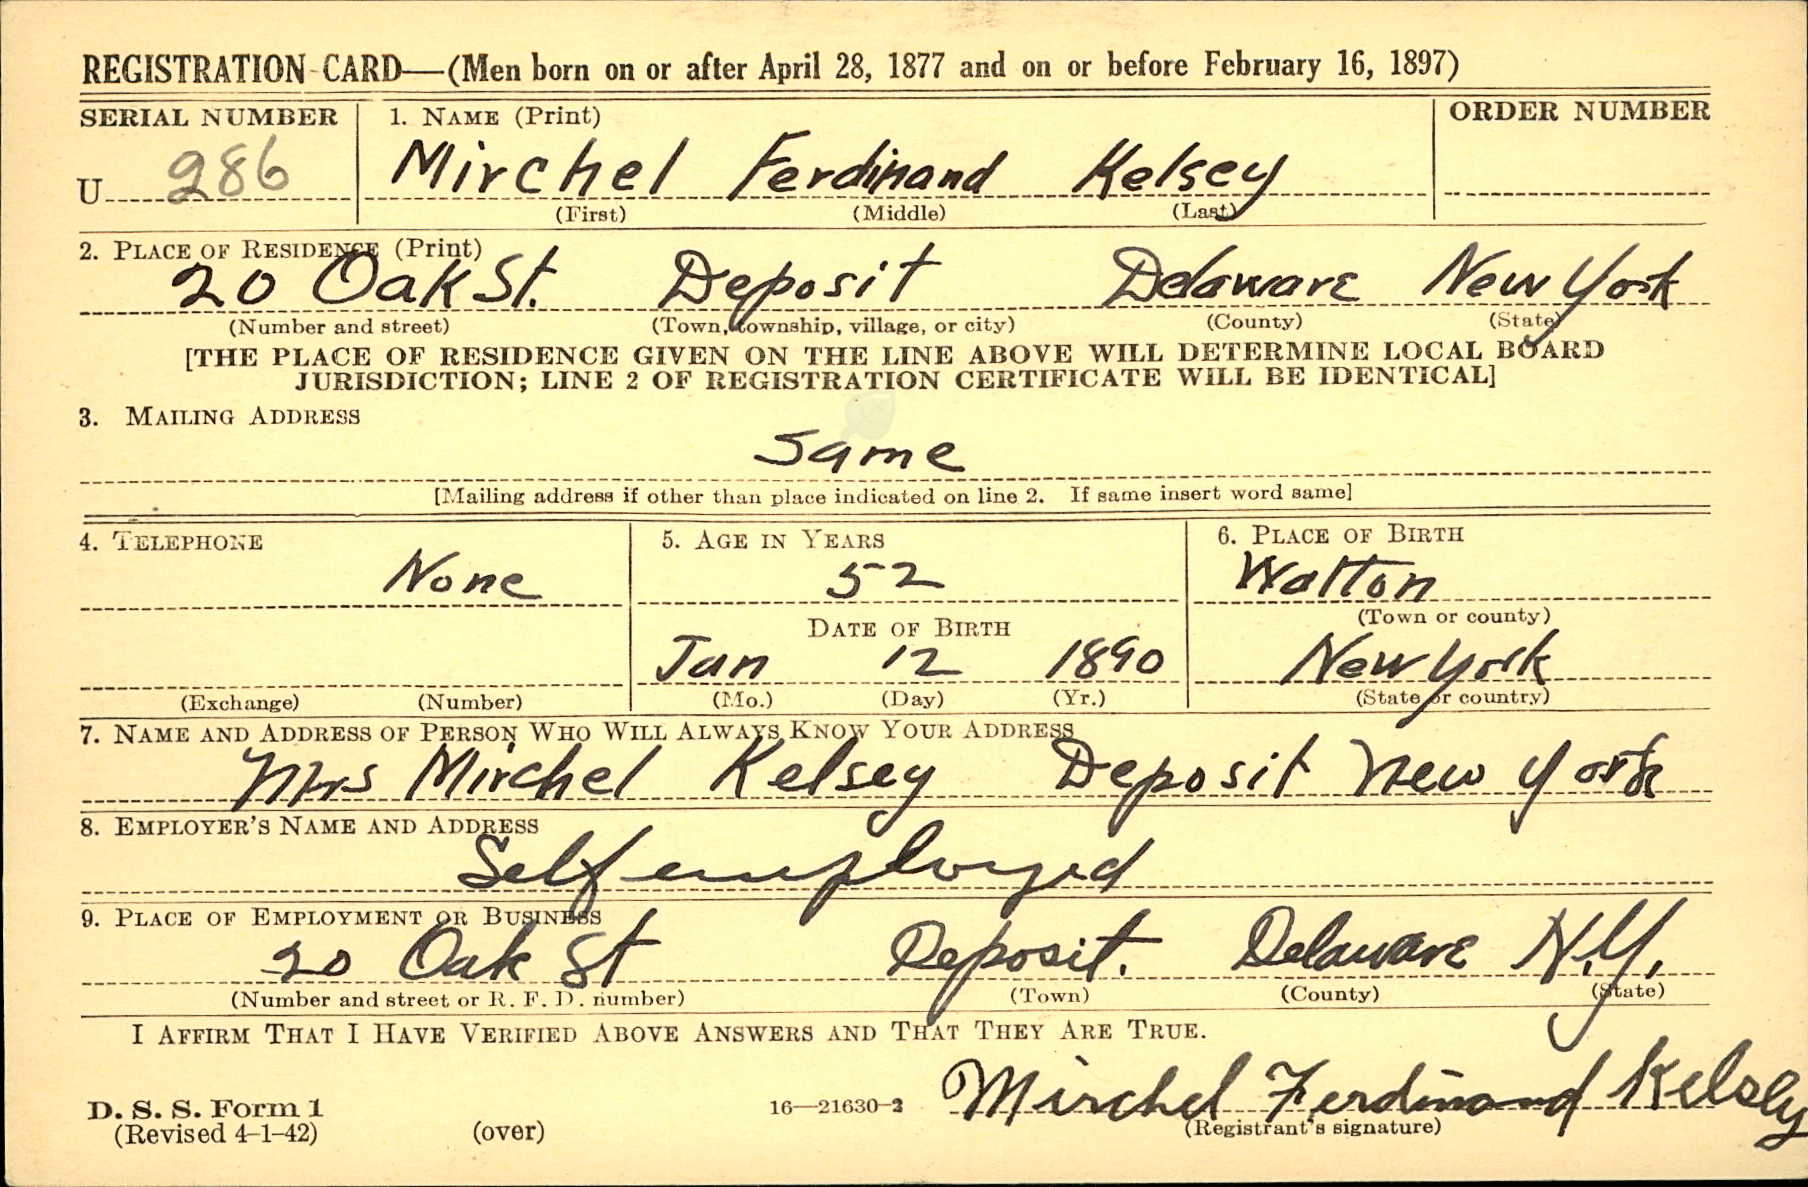 REGISTRATION CARD—(Men born on or after April 28, 1877 and on or before February 16, 1897)
SERIAL NUMBER 1. NAME (Print) ORDER NUMBER
U 286 Mirchel Ferdinand Kelsey
(First) (Middle) (Last)
2. PLACE OF RESIDENCE (Print)
20 Oak St. Deposit Delaware New York
(Number and street) (Town, township, village, or city) (County) (State)
[THE PLACE OF RESIDENCE GIVEN ON THE LINE ABOVE WILL DETERMINE LOCAL BOARD
JURISDICTION; LINE 2 OF REGISTRATION CERTIFICATE WILL BE IDENTICAL]
3. MAILING ADDRESS
Same
[Mailing address if other than place indicated on line 2. If same insert word same]
4. TELEPHONE 5. AGE IN YEARS 6. PLACE OF BIRTH
None 52 Walton
DATE OF BIRTH (Town or county)
Jan 12 1890 New York
(Exchange) (Number) (Mo.) (Day) (Yr.) (State or country)
7. NAME AND ADDRESS OF PERSON WHO WILL ALWAYS KNOW YOUR ADDRESS
Mrs Mirchel Kelsey Deposit New York
8. EMPLOYER'S NAME AND ADDRESS
Self employed
9. PLACE OF EMPLOYMENT OR BUSINESS
20 Oak St Deposit. Delaware N.Y.
(Number and street or R. F. D. number) (Town) (County) (State)
I AFFIRM THAT I HAVE VERIFIED ABOVE ANSWERS AND THAT THEY ARE TRUE.
Mirchel Ferdinand Kelsey
D. S. S. Form 1 16—21630-2 (Registrant's signature)
(Revised 4-1-42) (over)